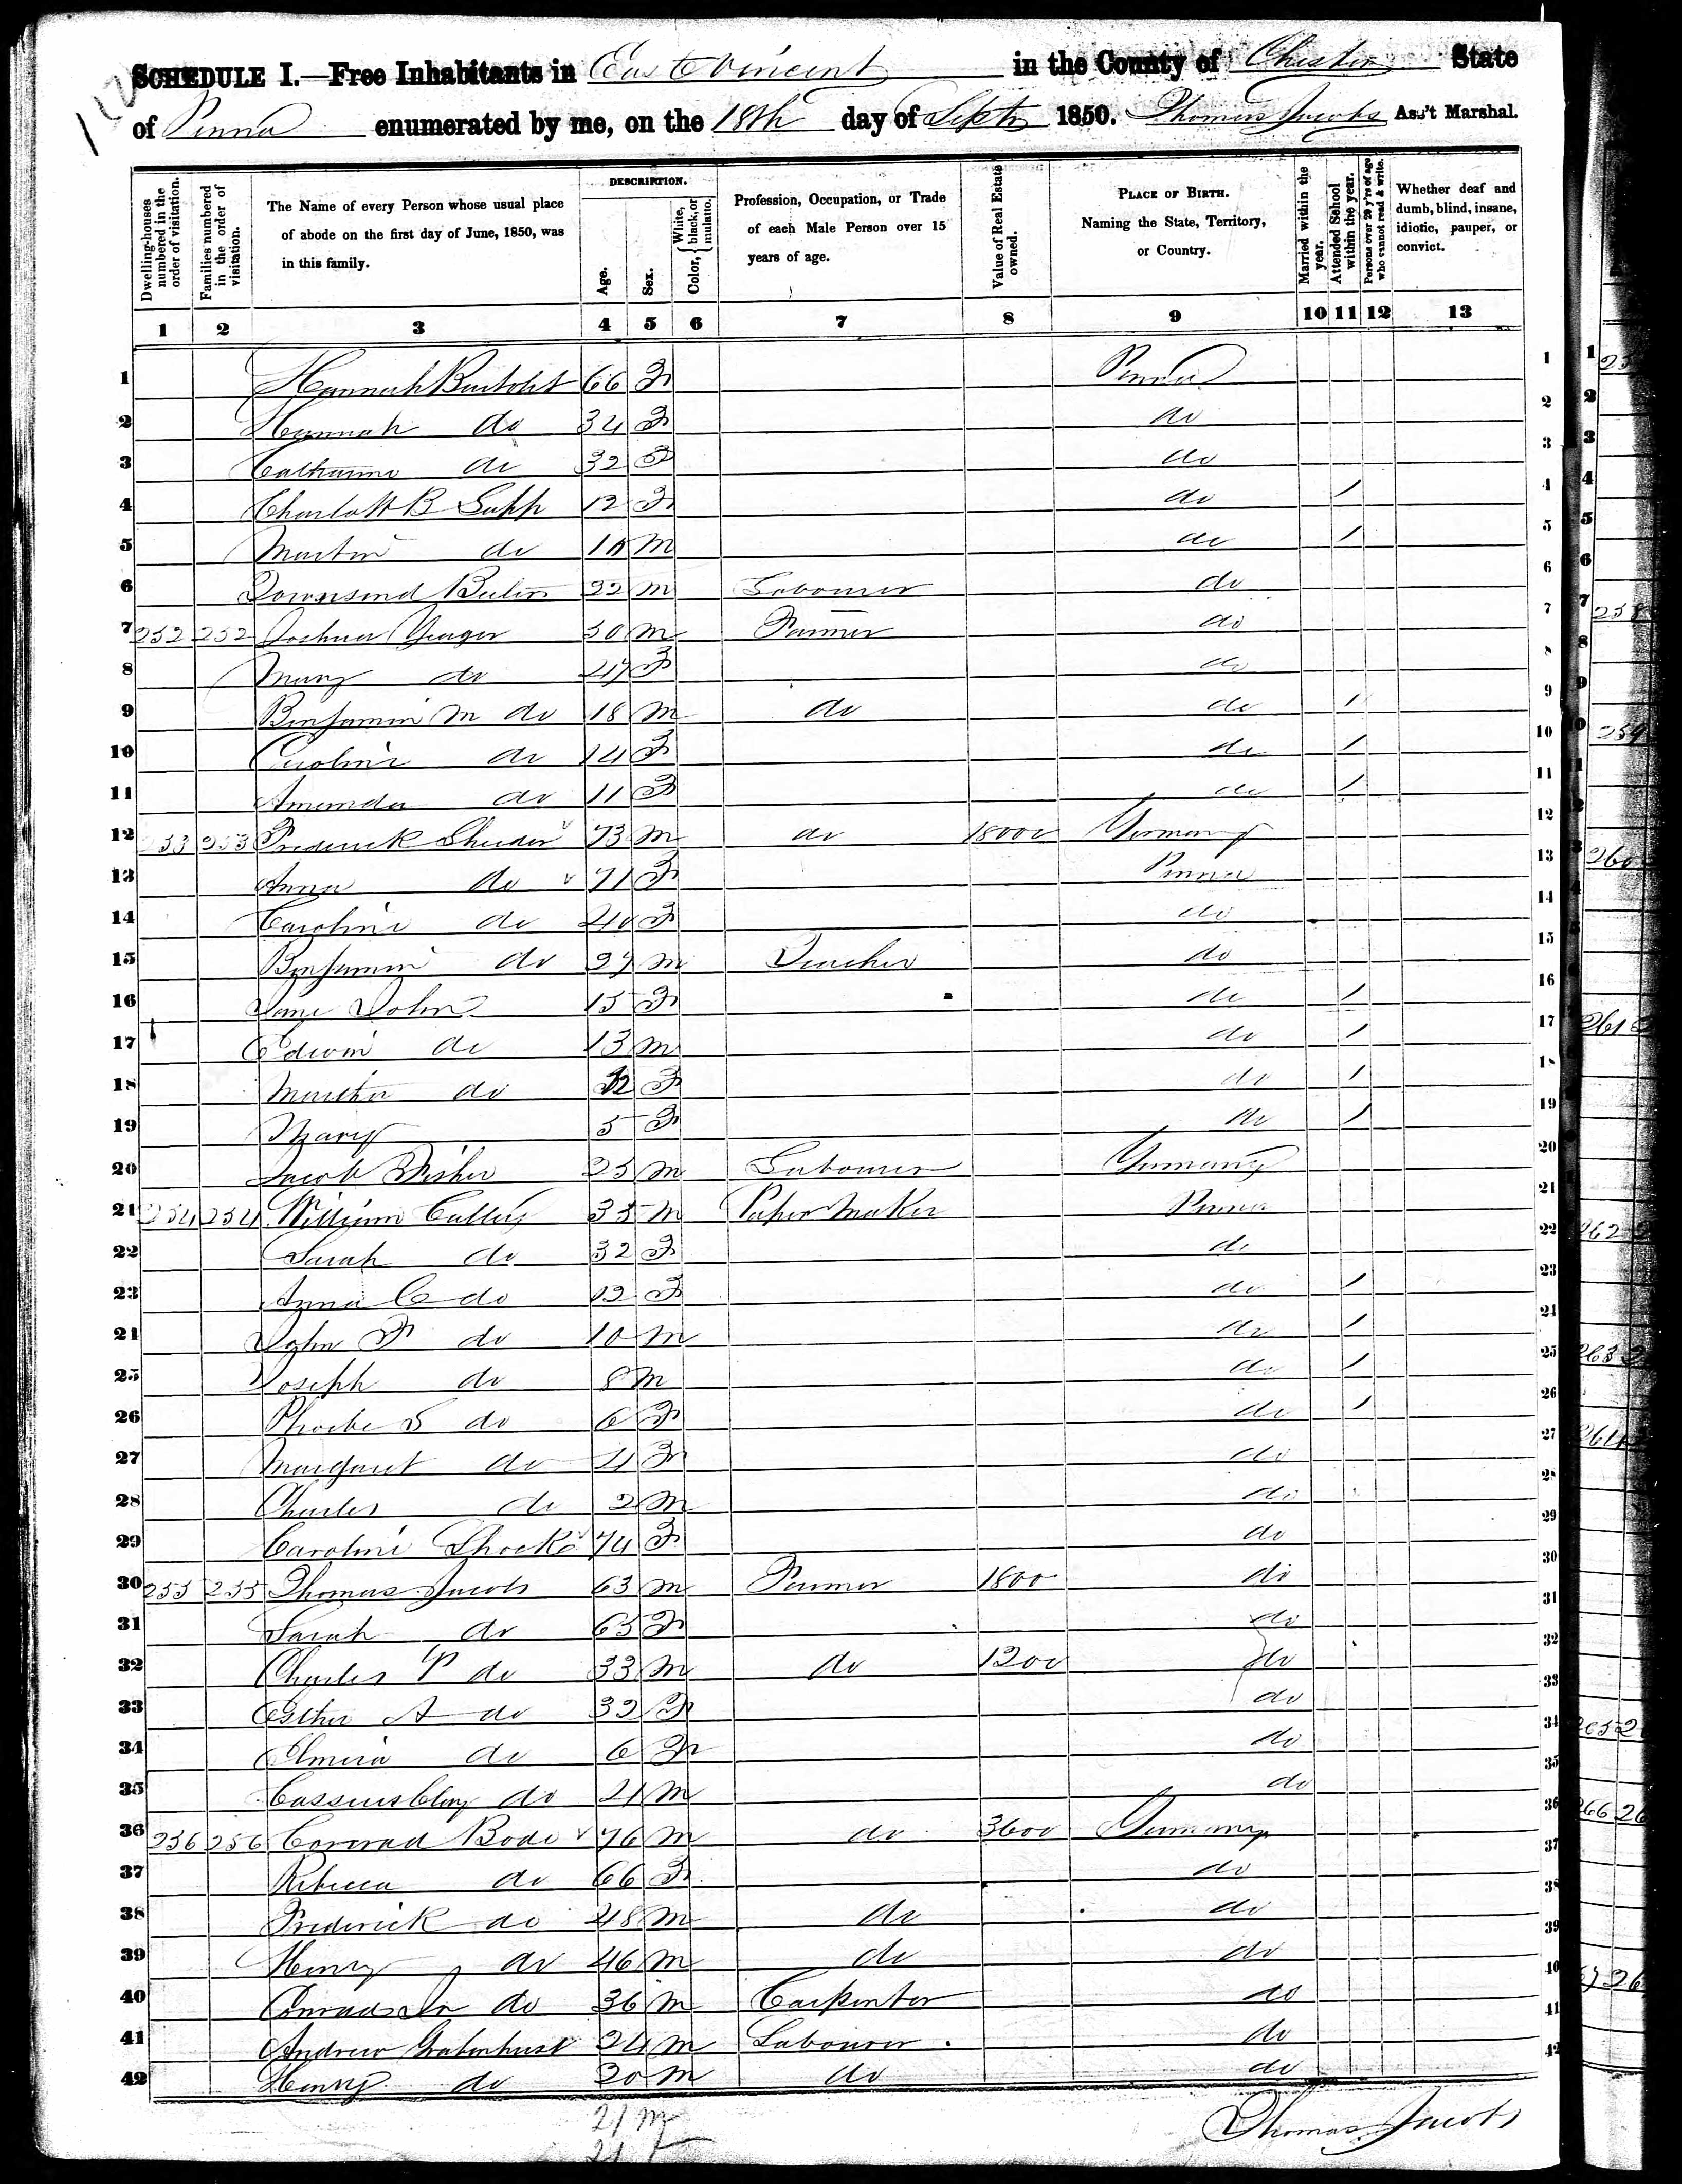 SCHEDULE I.—Free Inhabitants in East Vincent in the County of Chester State
of Penna enumerated by me, on the 18th day of Septr 1850. Thomas Jacobs Ass't Marshal.
Dwelling-houses numbered in the order of visitation.
Families numbered in the order of visitation.
The Name of every Person whose usual place of abode on the first day of June, 1850, was in this family.
DESCRIPTION.
Age.
Sex.
Color, { White, black, or mulatto.
Profession, Occupation, or Trade of each Male Person over 15 years of age.
Value of Real Estate owned.
PLACE OF BIRTH. Naming the State, Territory, or Country.
Married within the year.
Attended School within the year.
Persons over 20 y'rs of age who cannot read & write.
Whether deaf and dumb, blind, insane, idiotic, pauper, or convict.
1 2 3 4 5 6 7 8 9 10 11 12 13
1 Hannah 66 F Penna 1
2 Hannah do 34 F do 2
3 Catharine do 32 F do 3
4 Charlott B Lapp 12 F do / 4
5 Martin do 10 M do / 5
6 Townsend 22 M Labourer do 6
7 252 252 Joshua Yeager 50 M Farmer do 7
8 Mary do 47 F do 8
9 Benjamin M do 18 M do do / 9
10 Caroline do 14 F do / 10
11 Amanda do 11 F do / 11
12 253 253 Frederick Sheeder 73 M do 18000 Germany 12
13 Anna do 71 F Penna 13
14 Caroline do 40 F do 14
15 Benjamin do 27 M Teacher do 15
16 Jane John 15 F do / 16
17 Edwin do 13 M do / 17
18 Martha do 12 F do / 18
19 Mary 5 F do / 19
20 Jacob Fisher 25 M Labourer Germany 20
21 254 254 William 35 M Paper Maker Penna 21
22 Sarah do 32 F do 22
23 Anna C do 12 F do / 23
24 John F do 10 M do / 24
25 Joseph do 8 M do / 25
26 Phoebe S do 6 F do / 26
27 Margaret do 4 F do 27
28 Charles do 2 M do 28
29 Caroline 74 F do 29
30 255 255 Thomas Jacobs 63 M Farmer 1800 do 30
31 Sarah do 65 F do 31
32 Charles P do 33 M do 1200 do 32
33 Esther A do 32 F do 33
34 Elmira do 6 F do 34
35 Cassius Clay do 4 M do 35
36 256 256 Conrad Bode 76 M do 3600 Germany 36
37 Rebecca do 66 F do 37
38 Frederick do 48 M do do 38
39 Henry do 46 M do do 39
40 Conrad Jr do 36 M Carpenter do 40
41 Andrew 24 M Labourer do 41
42 Henry do 20 M do do 42
21 M
21 F
Thomas Jacobs